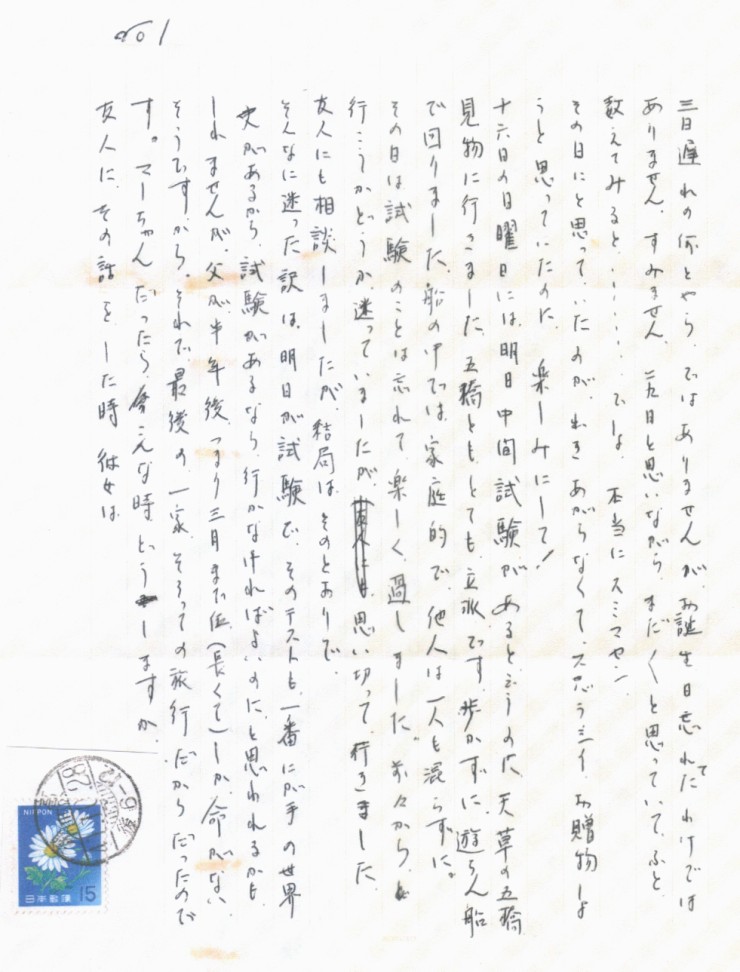 No1
三日遅れの何とやら、ではありませんが、お誕生日忘れてたわけでは
ありません。すみません。二九日と思いながら、まだまだと思っていて、ふと
数えてみると・・・・・・・でしょ。本当にスミマセン！
その日にと思っていたのが、出きあがらなくて、大思う お贈物しよ
うと思っていたのに、楽しみにして！
十六日の日曜日には、明日中間試験があると言うのに、天草の五橋
見物に行きました。五橋とも、とても立派です。歩かずに、遊らん船
で回りました。船の中では、家庭的で、他人は一人も混らずに。
その日は試験のことは忘れて、楽しく過しました。前々から、
行こうかどうか迷っていましたが、思い切って、行きました。
友人にも相談しましたが、結局は、そのとおりで。
そんなに迷った訳は、明日が試験で、そのテストも、一番にが手の世界
史があるから、試験があるなら、行かなければよいのに、と思われるかも
しれませんが、父が半年後、つまり三月まで位（長くて）しか、命がない
そうですから、それで、最後の一家、そろっての旅行だからだったので
す。マーちゃんだったら、こんな時どうしますか
友人に、その話をした時 彼女は、
NIPPON
15
日本郵便